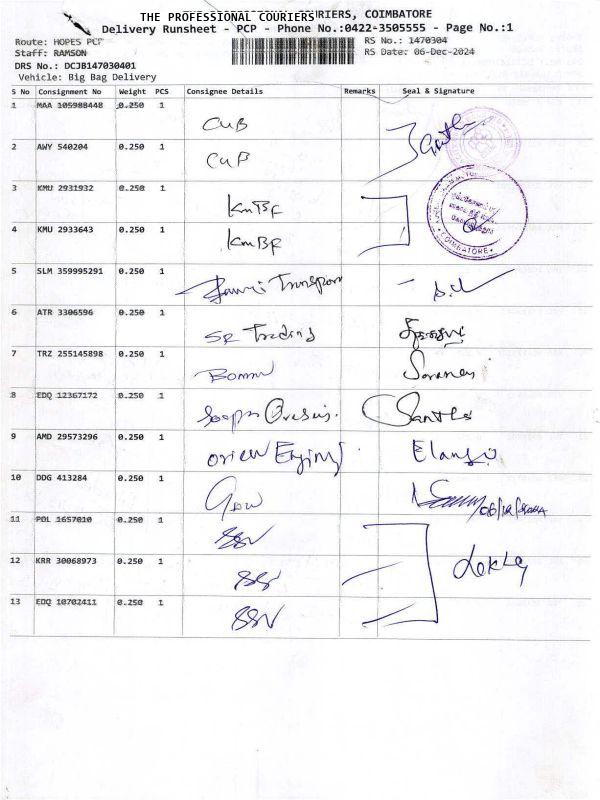 THE PROFESSIONAL COURIERS
URIERS, COIMBATORE
Delivery Runsheet - PCP - Phone No.:0422-3505555 - Page No.:1
Route: HOPES PCP
RS No.: 1470304
Staff: RAMSON
RS Date: 06-Dec-2024
DRS No.: DCJB147030401
Vehicle: Big Bag Delivery
S No Consignment No Weight PCS Consignee Details Remarks Seal & Signature
1 MAA 105988448 0.250 1
CUB
2 AWY 540204 0.250 1
CUB
3 KMU 2931932 0.250 1
KmBF
4 KMU 2933643 0.250 1
KmBF
COIMBATORE
5 SLM 359995291 0.250 1
6 ATR 3306596 0.250 1
SR Trading
7 TRZ 255145898 0.250 1
8 EDQ 12367172 0.250 1
9 AMD 29573296 0.250 1
Elango
10 DDG 413284 0.250 1
06/12/2024
11 POL 1657010 0.250 1
SSV
12 KRR 30068973 0.250 1
SSV
13 EDQ 10702411 0.250 1
SSV